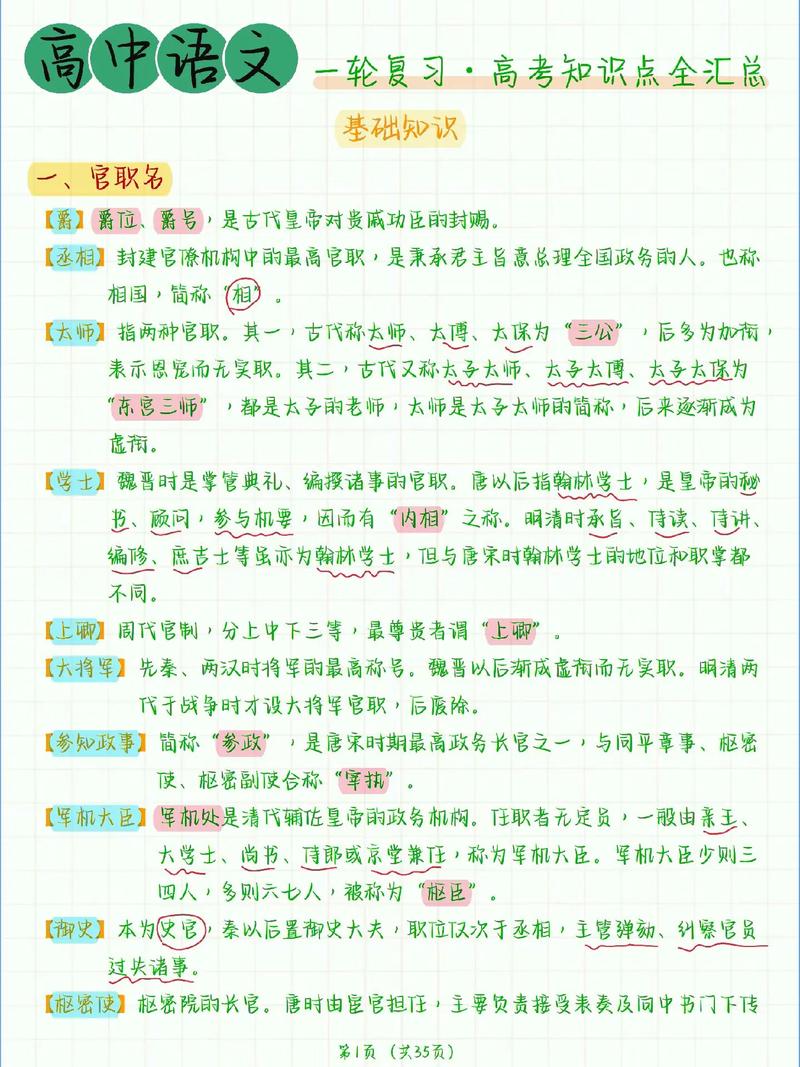 高中语文 一轮复习·高考知识点全汇总
基础知识
一、官职名
【爵】爵位、爵号，是古代皇帝对贵戚功臣的封赐。
【丞相】封建官僚机构中的最高官职，是秉承君主旨意总理全国政务的人。也称
相国，简称“相”。
【太师】指两种官职。其一，古代称太师、太傅、太保为“三公”，后多为加衔，
表示恩宠而无实职。其二，古代又称太子太师、太子太傅、太子太保为
“东宫三师”，都是太子的老师，太师是太子太师的简称，后来逐渐成为
虚衔。
【学士】魏晋时是掌管典礼、编撰诸事的官职。唐以后指翰林学士，是皇帝的秘
书、顾问，参与机要，因而有“内相”之称。明清时承旨、侍读、侍讲、
编修、庶吉士等虽亦为翰林学士，但与唐宋时翰林学士的地位和职掌都
不同。
【上卿】周代官制，分上中下三等，最尊贵者谓“上卿”。
【大将军】先秦、两汉时将军的最高称号。魏晋以后渐成虚衔而无实职。明清两
代于战争时才设大将军官职，后废除。
【参知政事】简称“参政”，是唐宋时期最高政务长官之一，与同平章事、枢密
使、枢密副使合称“宰执”。
【军机大臣】军机处是清代辅佐皇帝的政务机构。任职者无定员，一般由亲王、
大学士、尚书、侍郎或京堂兼任，称为军机大臣。军机大臣少则三
四人，多则六七人，被称为“枢臣”。
【御史】本为史官，秦以后置御史大夫，职位仅次于丞相，主管弹劾、纠察官员
过失诸事。
【枢密使】枢密院的长官。唐时由宦官担任，主要负责接受表奏及同中书门下传
第1页（共35页）